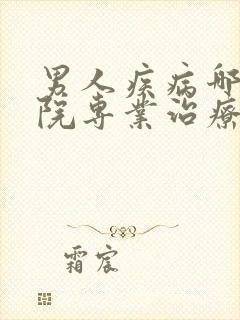 男人疾病哪
院专業治療
霜宸